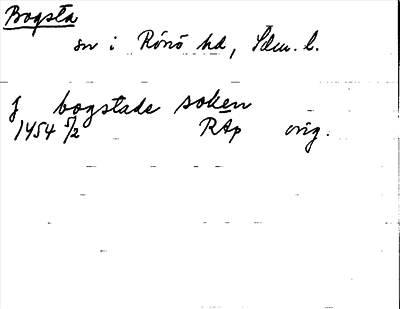 Bogsta
sn i Rönö hd, Sdm. l.
J bogstade soken
1454 5/2 RAp orig.